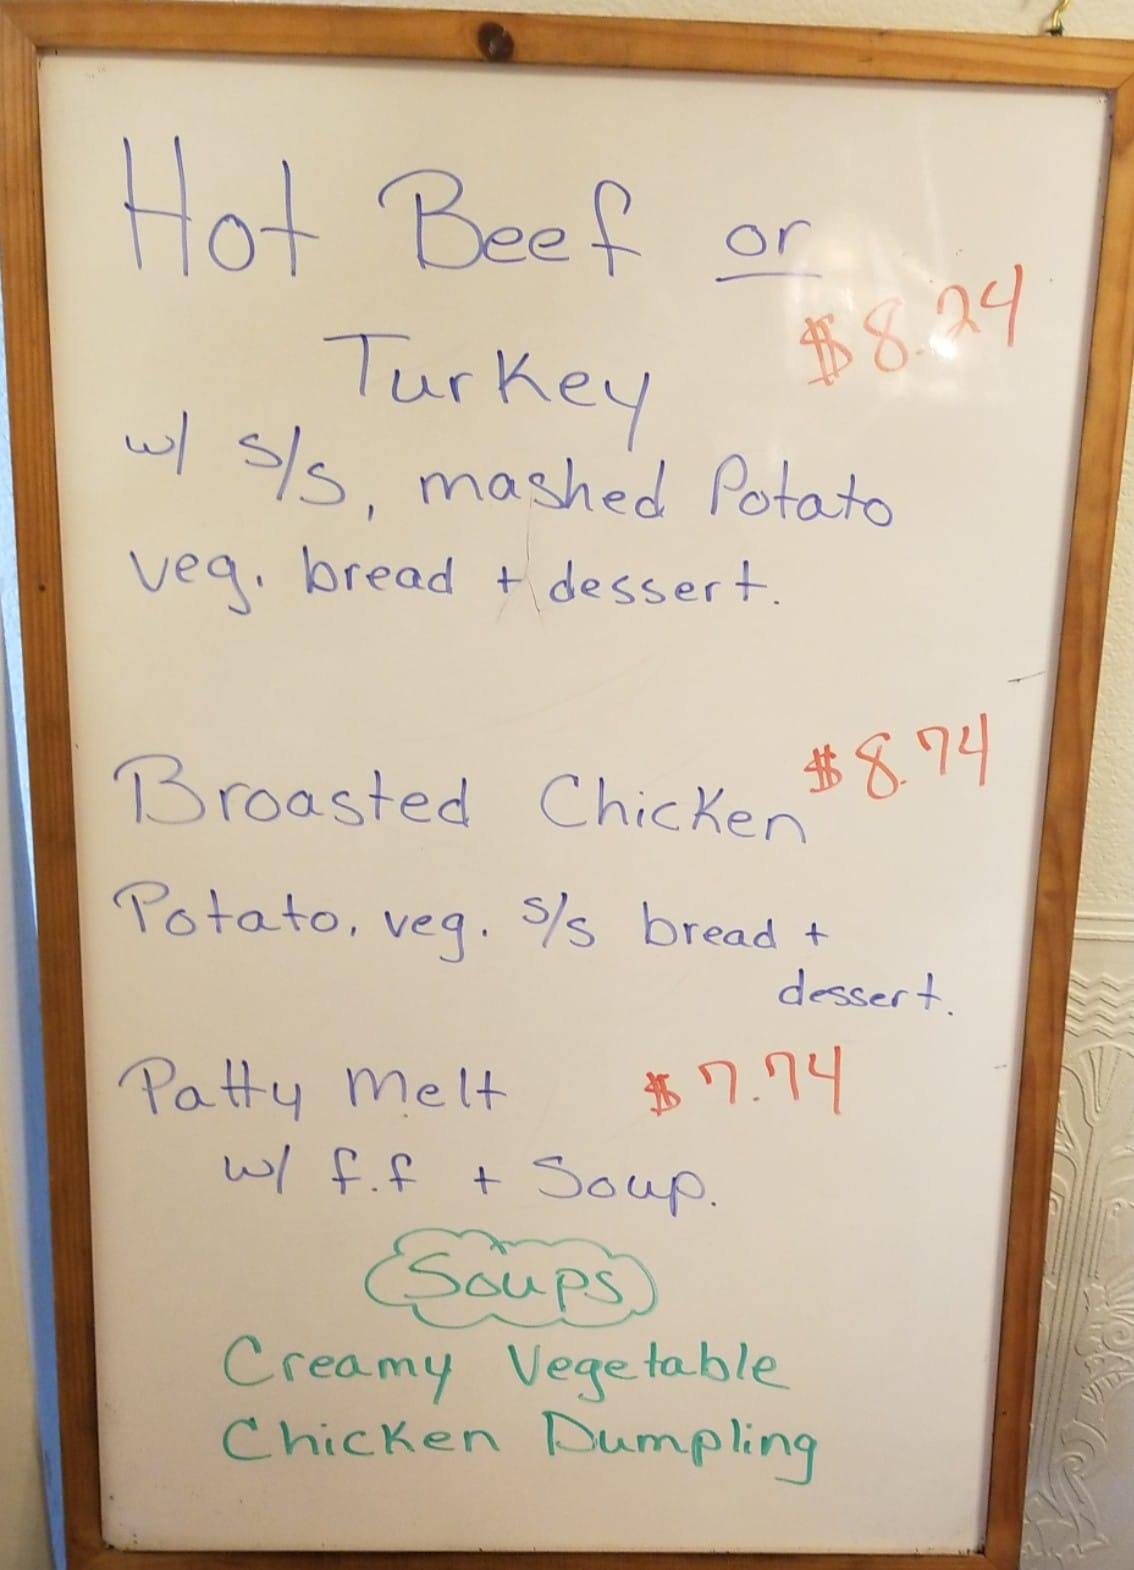 Hot Beef or
$8.24
Turkey
w/ s/s, mashed Potato
veg. bread + dessert.
Broasted Chicken $8.74
Potato, veg. s/s bread +
dessert.
Patty Melt $7.74
w/ f.f + Soup.
Soups
Creamy Vegetable
Chicken Dumpling